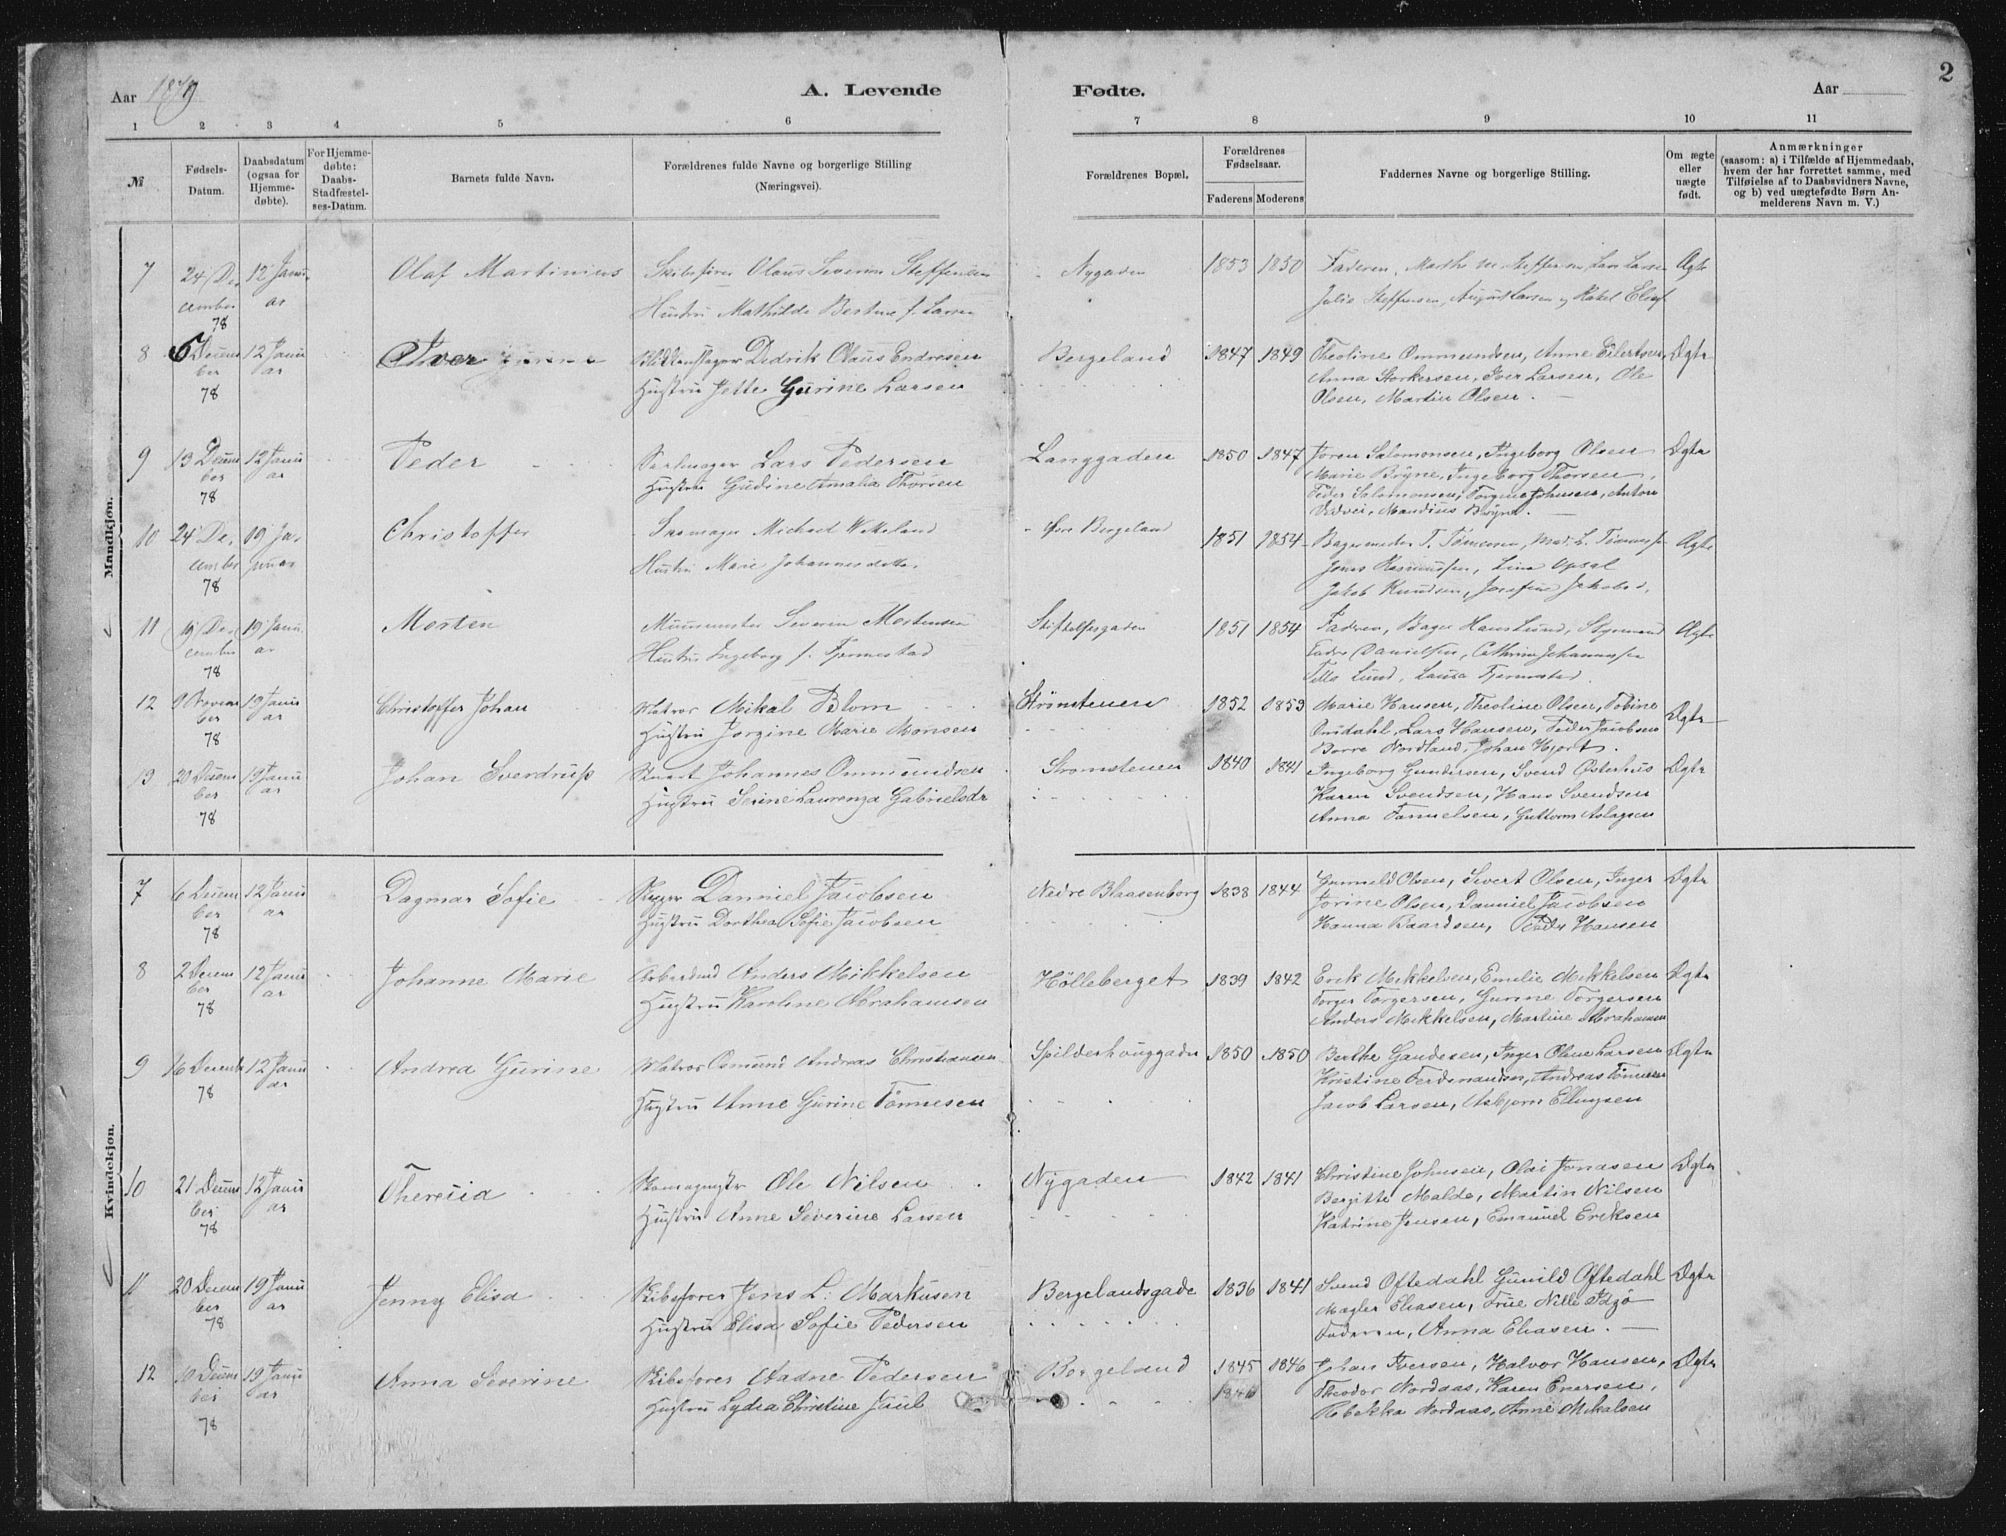 2
Aar 1879
A. Levende
Fødte.
Aar
1 2 3 4 5 6 7 8 9 10 11
№
Fødsels-
Datum.
Daabsdatum
(ogsaa for
Hjemme-
døbte).
For Hjemme-
døbte:
Daabs-
Stadfæstel-
ses-Datum.
Barnets fulde Navn.
Forældrenes fulde Navne og borgerlige Stilling
(Næringsvei).
Forældrenes Bopæl.
Forældrenes
Fødselsaar.
Faderens Moderens
Faddernes Navne og borgerlige Stilling.
Om ægte
eller
uægte
født.
Anmærkninger
(saasom: a) i Tilfælde af Hjemmedaab,
hvem der har forrettet samme, med
Tilføielse af to Daabsvidners Navne,
og b) ved uægtefødte Børn An-
melderens Navn m. V.)
Mandkjøn.
7
24 De-
cember
78
12 Janu-
ar
Olaf Martinius
Skibsfører Olaus Severin Steffensen
Hustru Mathilde Bertine f. Larsen
Nygaden
1853 1850
Faderen, Marthe M. Steffensen, Lars Larsen
Julie Steffensen, August Larsen, Rakel
Ægte
8
6 Decem
ber
78
12 Janu
ar
Iver
Blikkenslager Didrik Olaus Endresen
Hustru Jette Gurine Larsen
Bergeland
1847 1849
Theoline Ommundsen, Anne Eilertsen
Anna Storkersen, Iver Larsen, Ole
Olsen, Martin Olsen.
Ægte
9
13 Decem
ber
78
12 Janu
ar
Peder
Lars Pedersen
Hustru Gudine Amalia Thorsen
Langgaden
1850 1847
Joren Salomonsen, Ingeborg Olsen
Marie Bryne, Ingeborg Thorsen,
Peder Salomonsen, Torgine Johnsen, Anton
Mandius Bryne.
Ægte
10
24 De-
cember
78
19 Ja-
nuar
Christoffer
Michael
Hustru Marie Johannesdatter
Øvre Bergeland
1851 1854
Bagermester T. Tønnesen, Mad. L. Tønnesen
Jonas Rasmussen, Lina Opsal
Jakob Knudsen, Josefine Jakobsd.
Ægte
11
19 De-
cember
78
19 Janu-
ar
Morten
Muurmester Severin Mortensen
Hustru Ingeborg f. Tjermestad
Stiftelsesgaden
1851 1854
Faderen, Bager Hans Lund, Styrmand
Endre Danielsen, Cathrine Johannessen
Lund, Laura Tjermestad.
Ægte
12
9 Novem
ber
78
19 Janu
ar
Christoffer Johan
Matros Mikal Blom
Hustru Jorgine Marie Monsen
Strømstenen
1852 1853
Marie Hansen, Theoline Olsen, Tobine
Lars Hansen, Peder Jacobsen
Børre Nordland, Johan Hjort.
Ægte
13
20 Decem
ber
78
19 Janu
ar
Johan Sverdrup
Johannes Ommundsen
Hustru Serine Laurenza Gabrielsdr
Strømstenen
1840 1841
Ingeborg Gundersen, Svend Østerhus
Karen Svendsen, Hans Svendsen
Anna Samuelsen, Guttorm Aslagsen
Ægte
Kvindekjøn.
7
6 Decem
ber
78
12 Janu
ar
Dagmar Sofie
Danniel Jacobsen
Hustru Dorthea Sofie Jacobsen
Nedre Blaasenborg
1838 1844
Gunnild Olsen, Sivert Olsen, Inger
Jorine Olsen, Danniel Jacobsen
Hanna Baardsen, Peder Hansen
Ægte
8
2 Decem
ber
78
12 Janu
ar
Johanne Marie
Arbeidsmd Anders Mikkelsen
Hustru Karoline Abrahamsen
Hølleberget
1839 1842
Erik Mikkelsen, Emilie Mikkelsen
Torger Torgersen, Gurine Torgersen
Anders Mikkelsen, Martine Abrahamsen
Ægte
9
16 Decemb
78
12 Janu
ar
Andrea Gurine
Matros Osmund Andreas Christiansen
Hustru Anne Gurine Tønnesen
Spilderhauggaden
1850 1850
Berthe Gaudesen, Inger Oline Larsen
Kristine Ferdinandsen, Andreas Tønnesen
Jacob Larsen, Asbjørn Ellingsen
Ægte
10
21 Decem
ber
78
12 Janu
ar
Theresia
Skomagmstr Ole Nilsen
Hustru Anne Severine Larsen
Nygaden
1842 1841
Christine Johnsen, Olai Jonasen
Bergitte Malde, Martin Nilsen
Katrine Jensen, Emanuel Eriksen
Ægte
11
20 Decem
ber
78
19 Janu
ar
Jenny Elisa
Skibsfører Jens L. Markusen
Hustru Elisa Sofie Pedersen
Bergelandsgade
1836 1841
Svend Oftedahl Gunild Oftedahl
Mægler Eliasen, Frue Nille Idsø
Faderen, Anna Eliasen.
Ægte
12
10 Decem
ber
78
19 Janu
ar
Anna Severine
Skibsfører Aadne Pedersen
Hustru Lydia Christine Juul
Bergeland
1845 1846
1846
Johan Iversen, Halvor Hansen,
Theodor Nordaas, Karen Enersen,
Rebekka Nordaas, Anne Mikalsen
Ægte